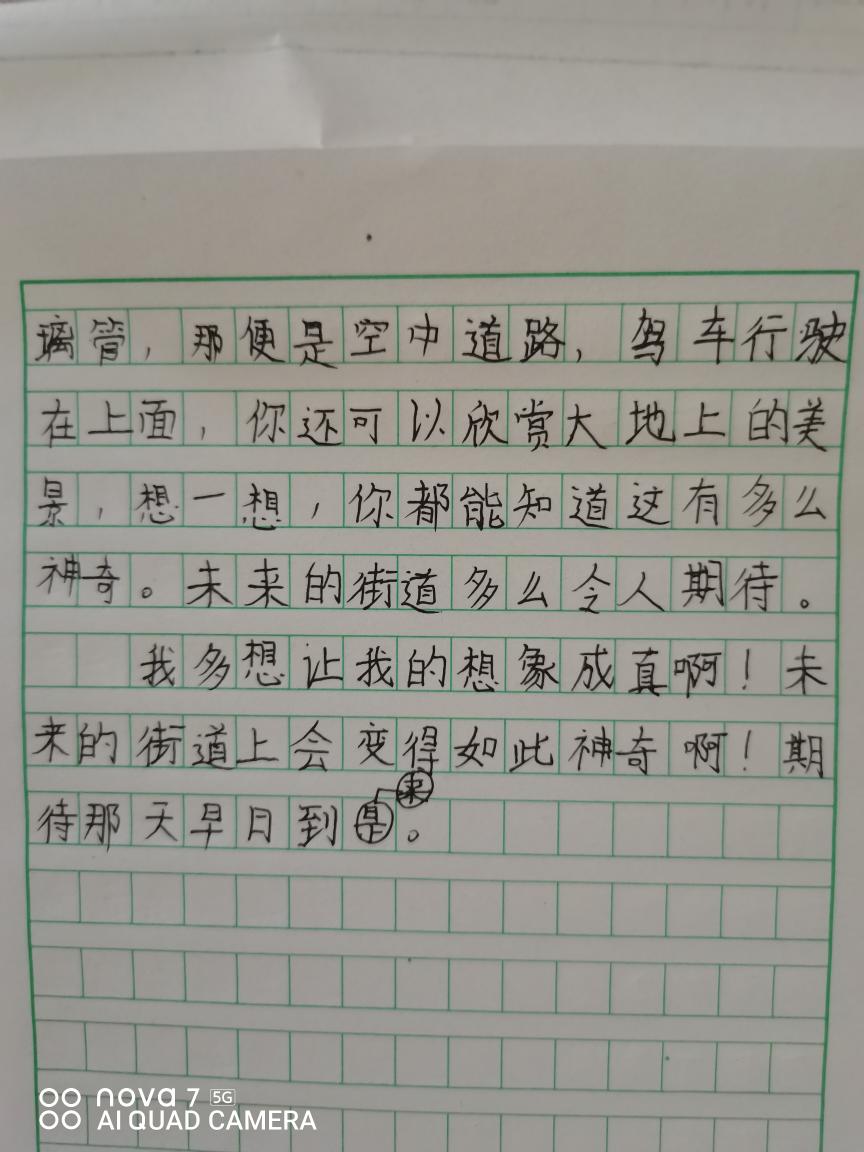 璃管，那便是空中道路，驾车行驶
在上面，你还可以欣赏大地上的美
景，想一想，你都能知道这有多么
神奇。未来的街道多么令人期待。
我多想让我的想象成真啊！未
来的街道上会变得如此神奇啊！期
来
待那天早日到是。
nova 7 5G
AI QUAD CAMERA